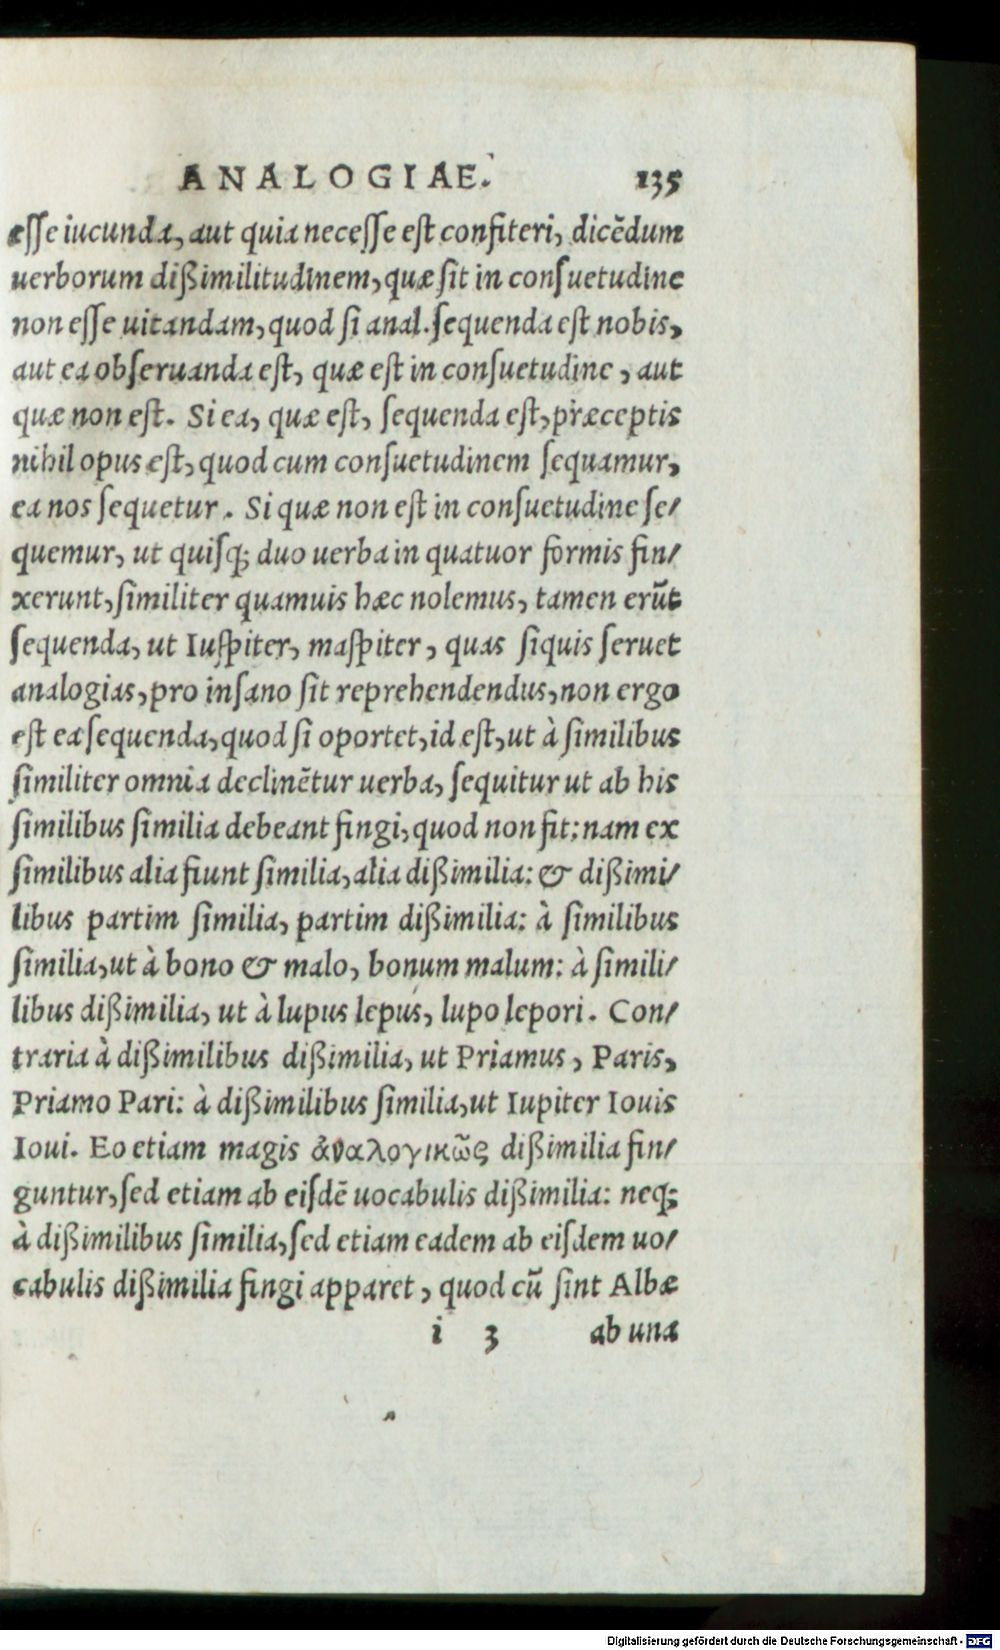 ANALOGIAE. 135
esse iucunda, aut quia necesse est confiteri, dicēdum
uerborum dißimilitudinem, quæ sit in consuetudine
non esse uitandam, quod si anal. sequenda est nobis,
aut ea obseruanda est, quæ est in consuetudine, aut
quæ non est. Si ea, quæ est, sequenda est, præceptis
nihil opus est, quod cum consuetudinem sequamur,
ea nos sequetur. Si quæ non est in consuetudine se/
quemur, ut quisq; duo uerba in quatuor formis fin/
xerunt, similiter quamuis hæc nolemus, tamen erūt
sequenda, ut Iuspiter, maspiter, quas siquis seruet
analogias, pro insano sit reprehendendus, non ergo
est ea sequenda, quod si oportet, id est, ut à similibus
similiter omnia declinētur uerba, sequitur ut ab his
similibus similia debeant fingi, quod non fit: nam ex
similibus alia fiunt similia, alia dißimilia: & dißimi/
libus partim similia, partim dißimilia: à similibus
similia, ut à bono & malo, bonum malum: à simili/
libus dißimilia, ut à lupus lepus, lupo lepori. Con/
traria à dißimilibus dißimilia, ut Priamus, Paris,
Priamo Pari: à dißimilibus similia, ut Iupiter Iouis
Ioui. Eo etiam magis ἀναλογικῶς dißimilia fin/
guntur, sed etiam ab eisdē uocabulis dißimilia: neq;
à dißimilibus similia, sed etiam eadem ab eisdem uo/
cabulis dißimilia fingi apparet, quod cū sint Albæ
i 3 ab una
Digitalisierung gefördert durch die Deutsche Forschungsgemeinschaft - DFG